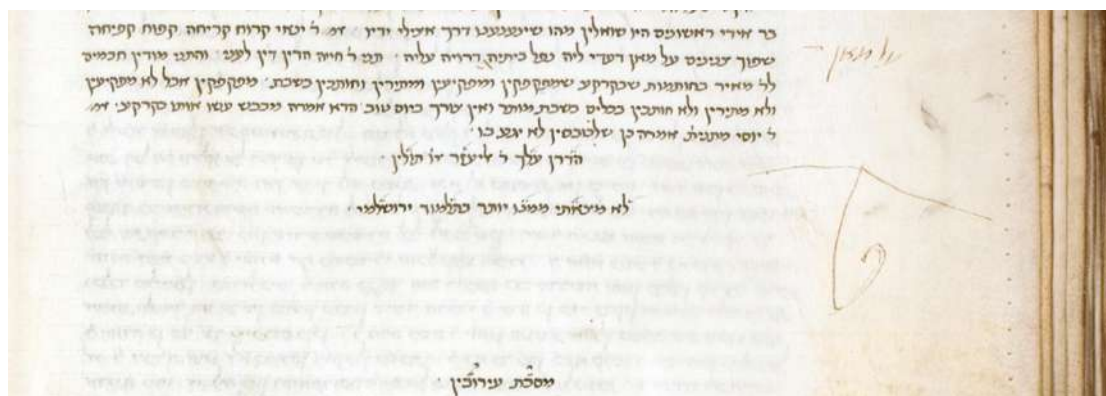 בר אידי ראשונים היו שואלין מהו שימעטענו דרך אכילי ידיו אמ' ר' ינאי קרוח קריחה קפוח קפיחה
שפוך צוננים על מאן דעדי ליה נפל ביתיה דרויה עליה תני ר' חייה הדין דין לעני והתני מודין חכמים
לר' מאיר בחותמות שבקרקע שמפקפקין ומפקיעין ומתירין וחותכין בשבת מפקפקין אבל לא מפקיעין
ולא מתירין ולא חותכין בכלים בשבת מותר ואין צורך ביום טוב הדא אמרה מכבש עשו אותו כקרקע אמ'
ר' יוסי מתנית' אמרה כן שלכובסין לא יגע בו
הדרן עלך ר' ליעזר או' תולין
לא מיצאתי ממנו יותר בתלמוד ירושלמי
מסכת עירובין
על מאן